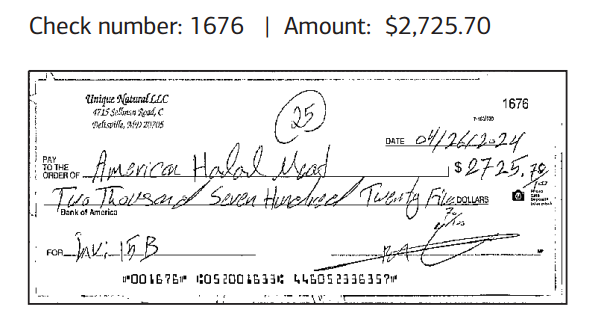 Check number: 1676 | Amount: $2,725.70
Unique Natural LLC
4715 Sellman Road, C
Beltsville, MD 20705
25
1676
7-163/520
DATE 04/26/2024
PAY
TO THE
ORDER OF American Halal Meat
$2725.70
Two Thousand Seven Hundred Twenty Five DOLLARS
70
Bank of America
FOR Inv: 15B
MP
⑈001676⑈ ⑆052001633⑆ 446052336357⑈